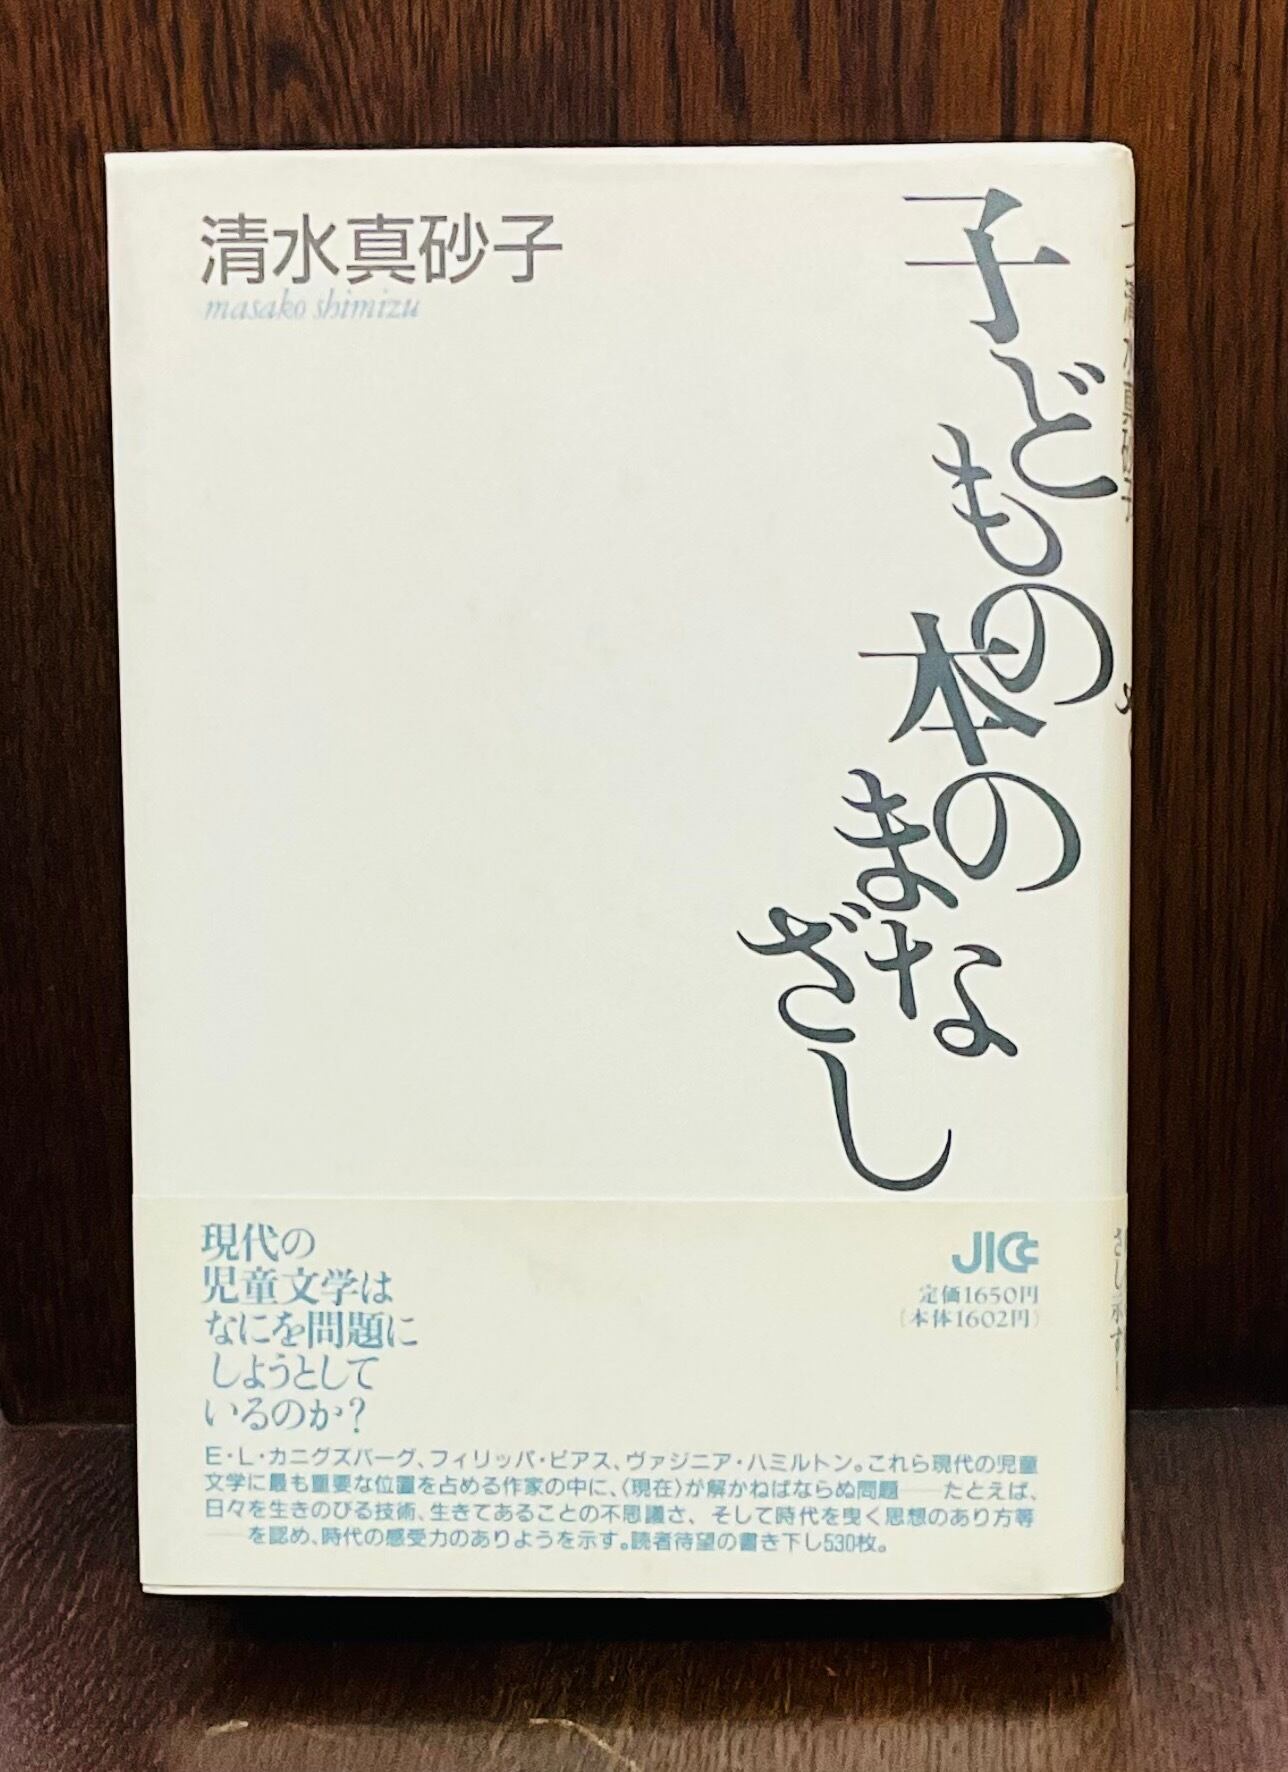 清水真砂子
masako shimizu
子どもの本のまなざし
現代の
児童文学は
なにを問題に
しようとして
いるのか?
JICC
定価1650円
(本体1602円)
E・L・カニグズバーグ、フィリッパ・ピアス、ヴァジニア・ハミルトン。これら現代の児童
文学に最も重要な位置を占める作家の中に、〈現在〉が解かねばならぬ問題——たとえば、
日々を生きのびる技術、生きてあることの不思議さ、そして時代を曳く思想のあり方等
——を認め、時代の感受力のありようを示す。読者待望の書き下し530枚。